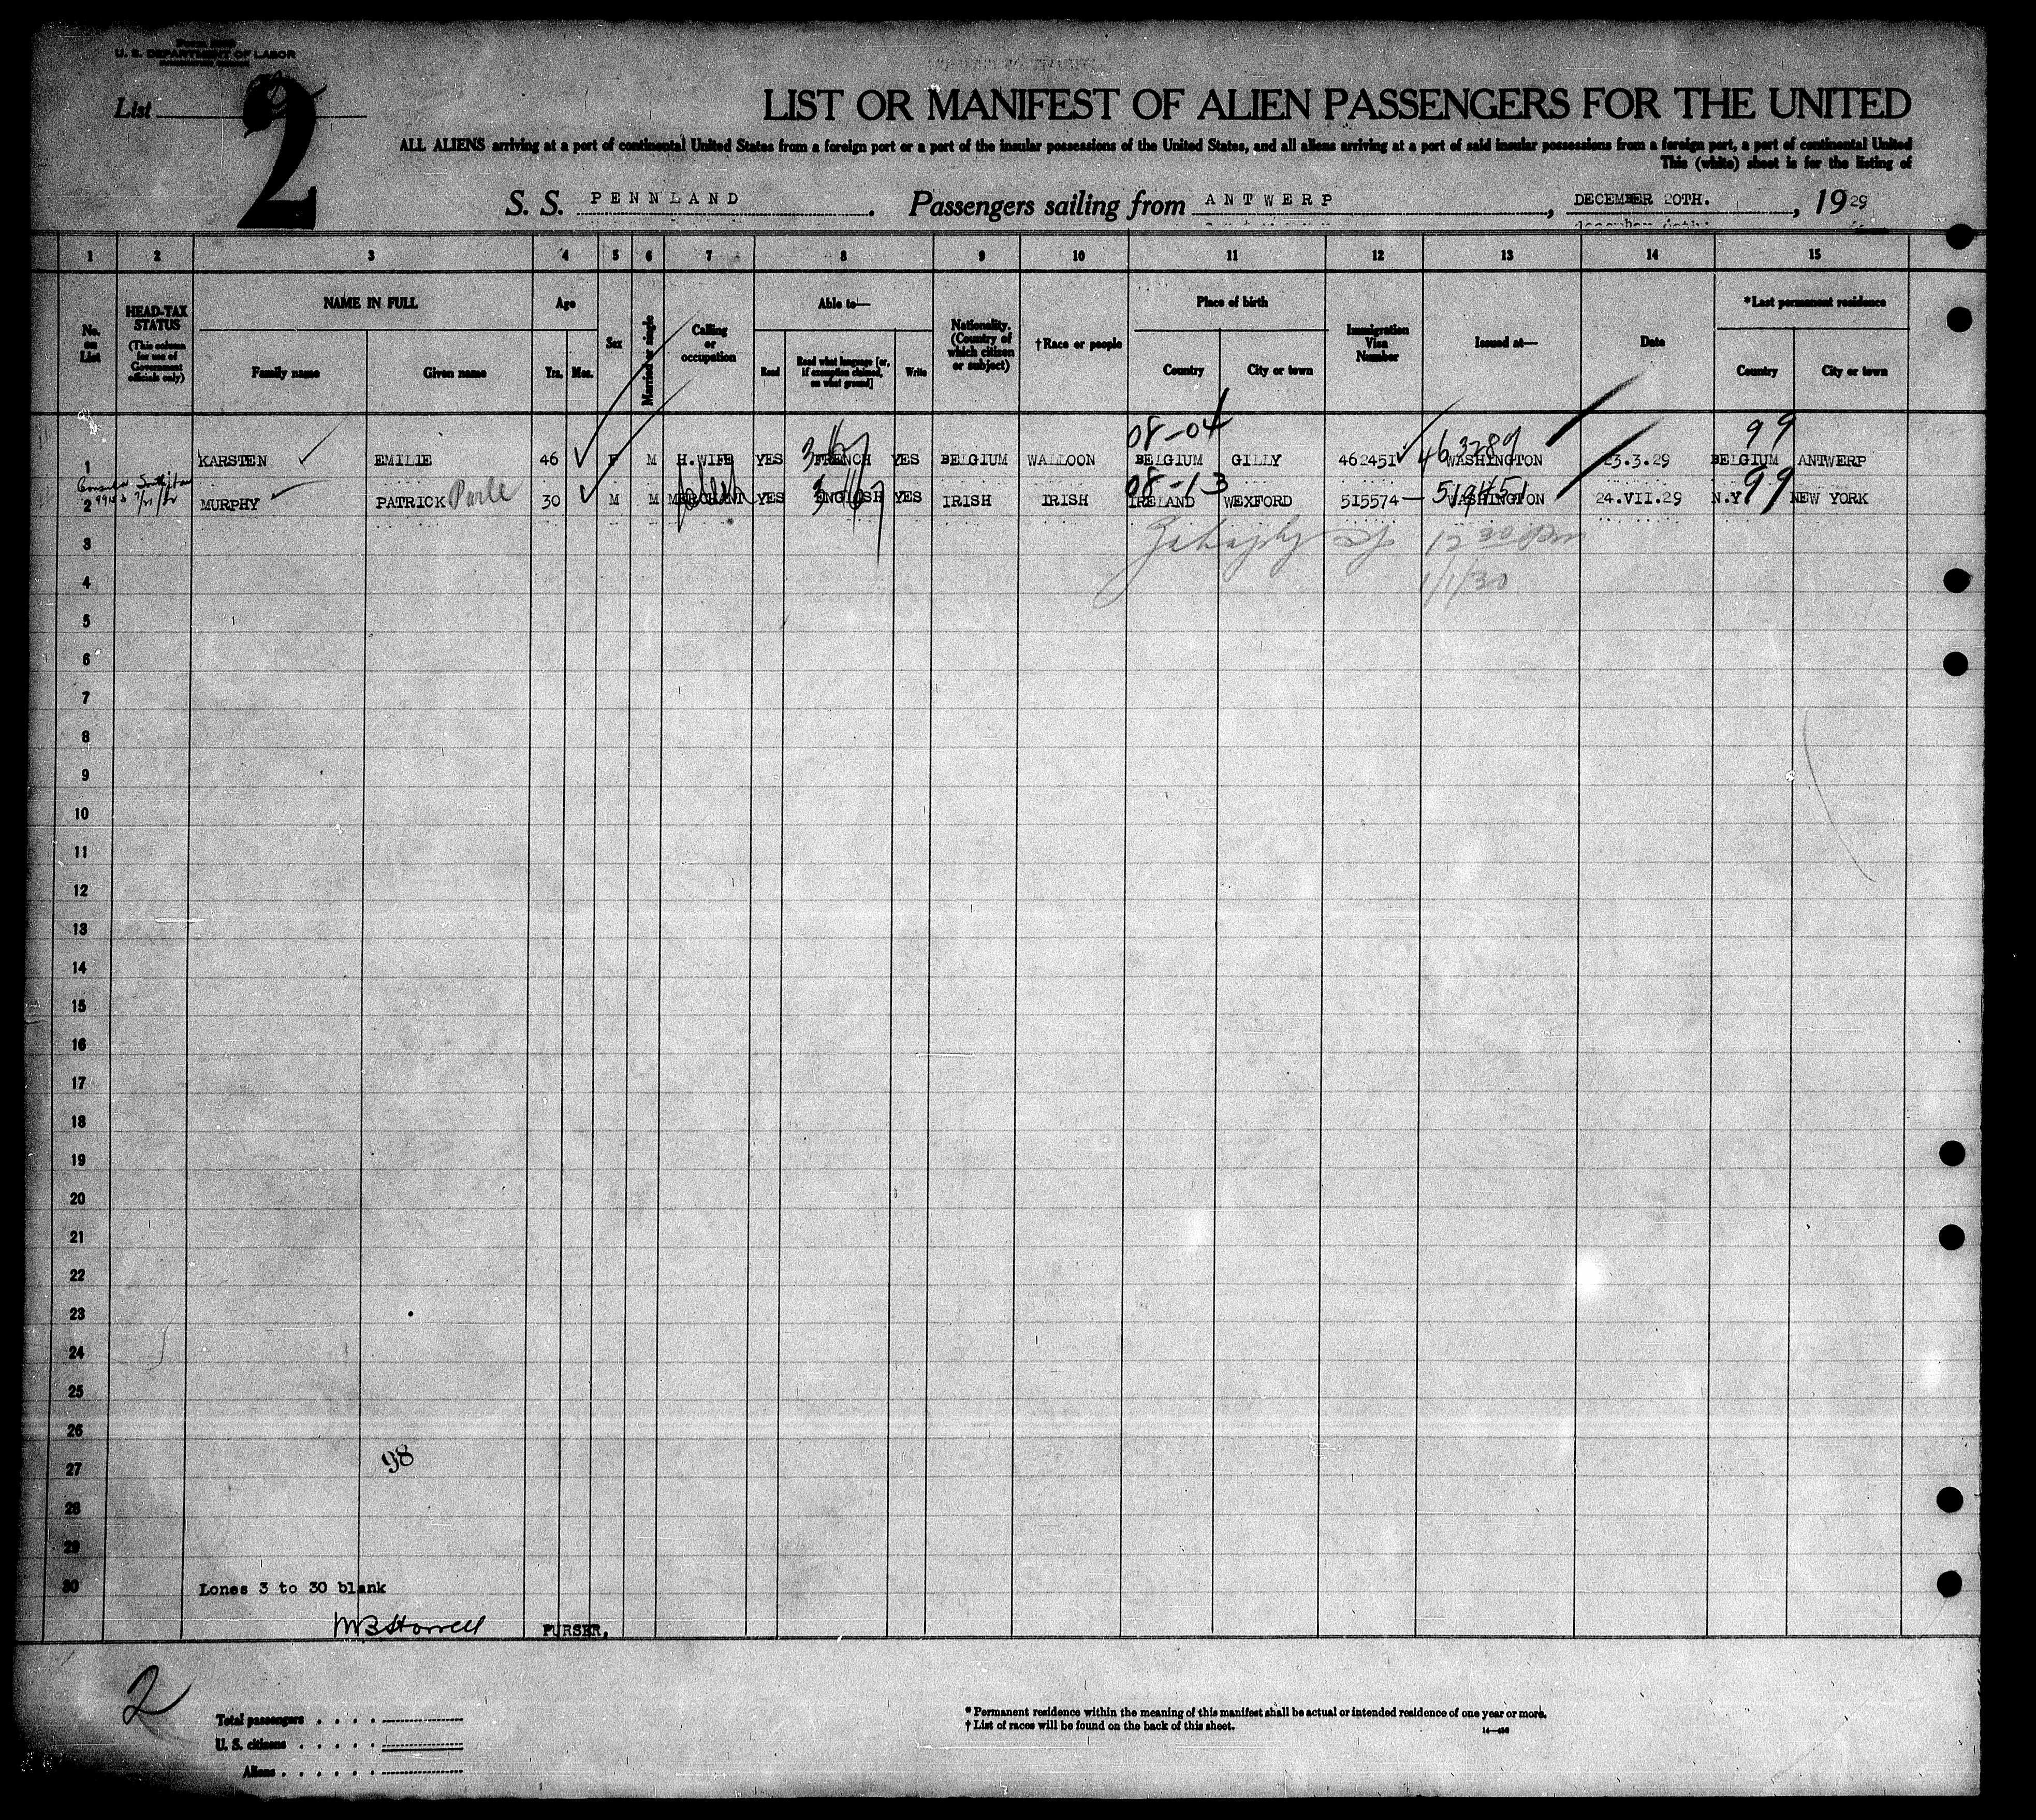 U. S. DEPARTMENT OF LABOR
List 2
LIST OR MANIFEST OF ALIEN PASSENGERS FOR THE UNITED
ALL ALIENS arriving at a port of continental United States from a foreign port or a port of the insular possessions of the United States, and all aliens arriving at a port of said insular possessions from a foreign port, a port of continental United
This (white) sheet is for the listing of
S. S. PENNLAND. Passengers sailing from ANTWERP, DECEMBER 20TH., 1929
1 2 3 4 5 6 7 8 9 10 11 12 13 14 15
No. on List
HEAD-TAX STATUS (This column for use of Government officials only)
NAME IN FULL
Family name Given name
Age
Yrs. Mos.
Sex
Married or single
Calling or occupation
Able to—
Read Read what language [or, if exemption claimed, on what ground] Write
Nationality. (Country of which citizen or subject)
†Race or people
Place of birth
Country City or town
Immigration Visa Number
Issued at—
Date
*Last permanent residence
Country City or town
08-04 99
1 KARSTEN EMILIE 46 F M H.WIFE YES FRENCH YES BELGIUM WALLOON BELGIUM GILLY 462451 463289 WASHINGTON 23.3.29 BELGIUM ANTWERP
08-13 99
2 MURPHY PATRICK 30 M M MERCHANT YES ENGLISH YES IRISH IRISH IRELAND WEXFORD 515574 519451 WASHINGTON 24.VII.29 N.Y. NEW YORK
3 12 30 pm
4 1/1/30
5
6
7
8
9
10
11
12
13
14
15
16
17
18
19
20
21
22
23
24
25
26
98
27
28
29
30 Lones 3 to 30 blank
PURSER.
2
Total passengers
U. S. citizens
Aliens
* Permanent residence within the meaning of this manifest shall be actual or intended residence of one year or more.
† List of races will be found on the back of this sheet.